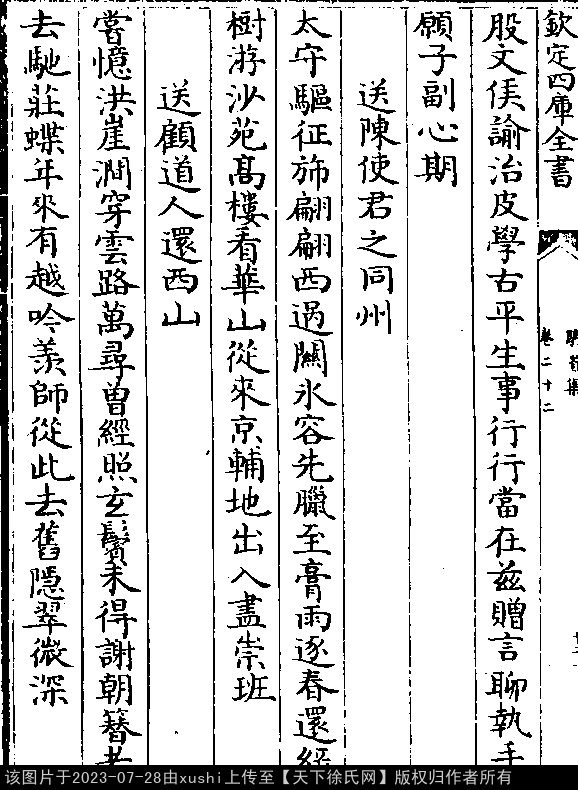 欽定四庫全書
卷二十二
股文侯諭治皮學古平生事行行當在兹贈言聊執手
願子副心期
送陳使君之同州
太守驅征斾翩翩西過關氷容先臘至膏雨逐春還
樹游沙苑髙樓看華山從來京輔地出入盡崇班
送顧道人還西山
嘗憶洪崖澗穿雲路萬尋曽經照玄鬢未得謝朝簪
去馳莊蝶年來有越吟羨師從此去舊隱翠微深
该图片于2023-07-28由xushi上传至【天下徐氏网】版权归作者所有